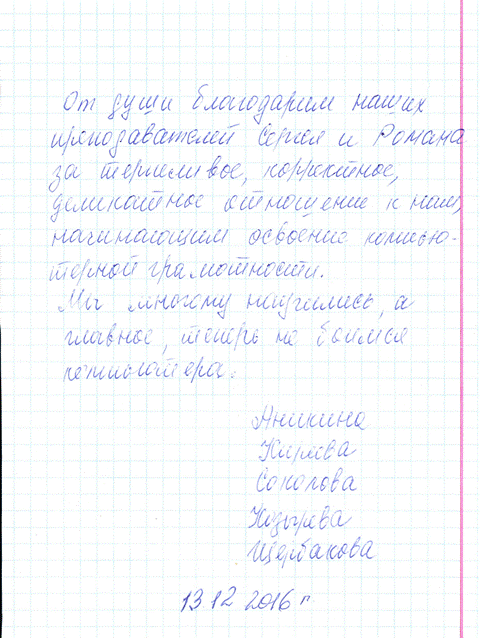 От души благодарим наших
преподавателей Сергея и Романа
за терпеливое, корректное,
деликатное отношение к нам,
начинающим освоение компью-
терной грамотности.
Мы многому научились, а
главное, теперь не боимся
компьютера.
Аникина
Киреева
Соколова
Козырева
Щербакова
13 12 2016 г